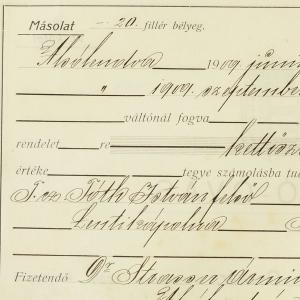 Másolat -20. fillér bélyeg.
Alsólendva 1909 júni
" 1909. szeptember
váltónál fogva
rendelet re kettősz
értéke tegye számolásba tu
T. cz. Tóth István felső
Lentikápolna
Fizetendő Dr Strasser Ármin